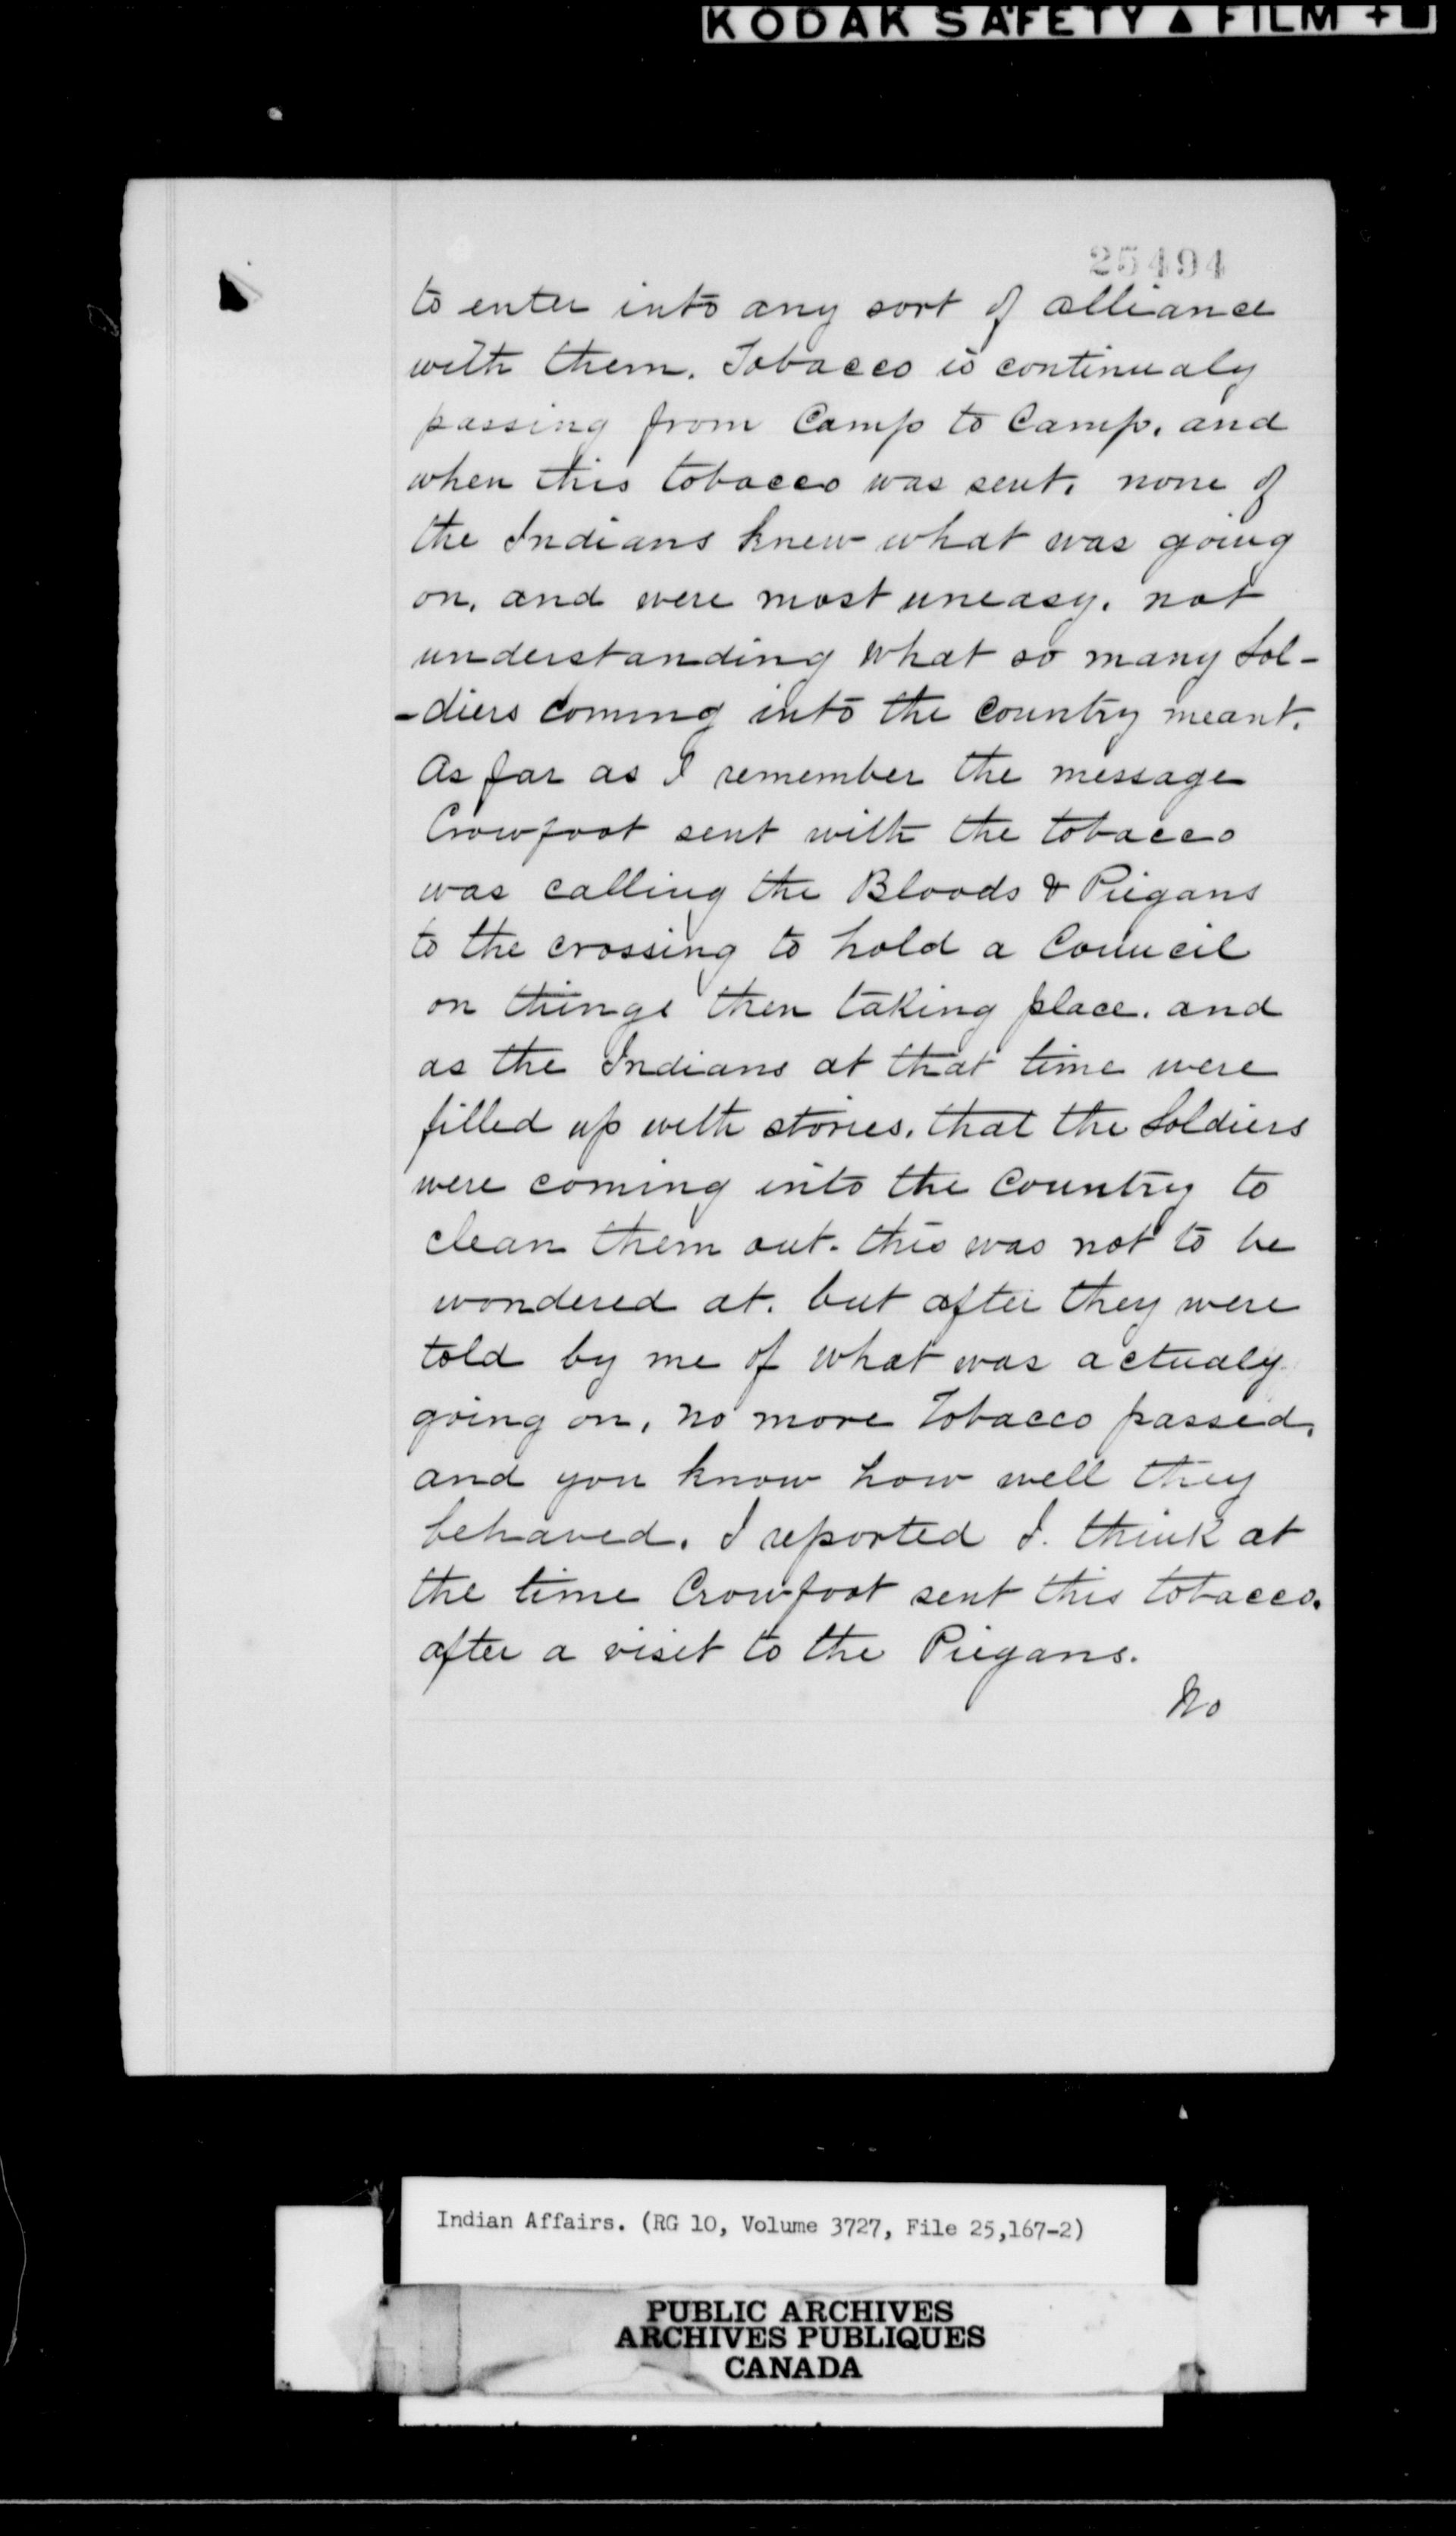 KODAK SAFETY ▲ FILM +
25494
to enter into any sort of alliance
with them. Tobacco is continualy
passing from Camp to Camp, and
when this tobacco was sent, none of
the Indians knew what was going
on, and were most uneasy, not
understanding what so many Sol-
-diers coming into the Country meant.
As far as I remember the message
Crowfoot sent with the tobacco
was calling the Bloods & Piegans
to the crossing to hold a Council
on things then taking place, and
as the Indians at that time were
filled up with stories, that the Soldiers
were coming into the Country to
clean them out. this was not to be
wondered at. but after they were
told by me of what was actualy
going on, no more Tobacco passed,
and you know how well they
behaved. I reported I. think at
the time Crowfoot sent this tobacco.
after a visit to the Piegans.
No
Indian Affairs. (RG 10, Volume 3727, File 25,167-2)
PUBLIC ARCHIVES
ARCHIVES PUBLIQUES
CANADA